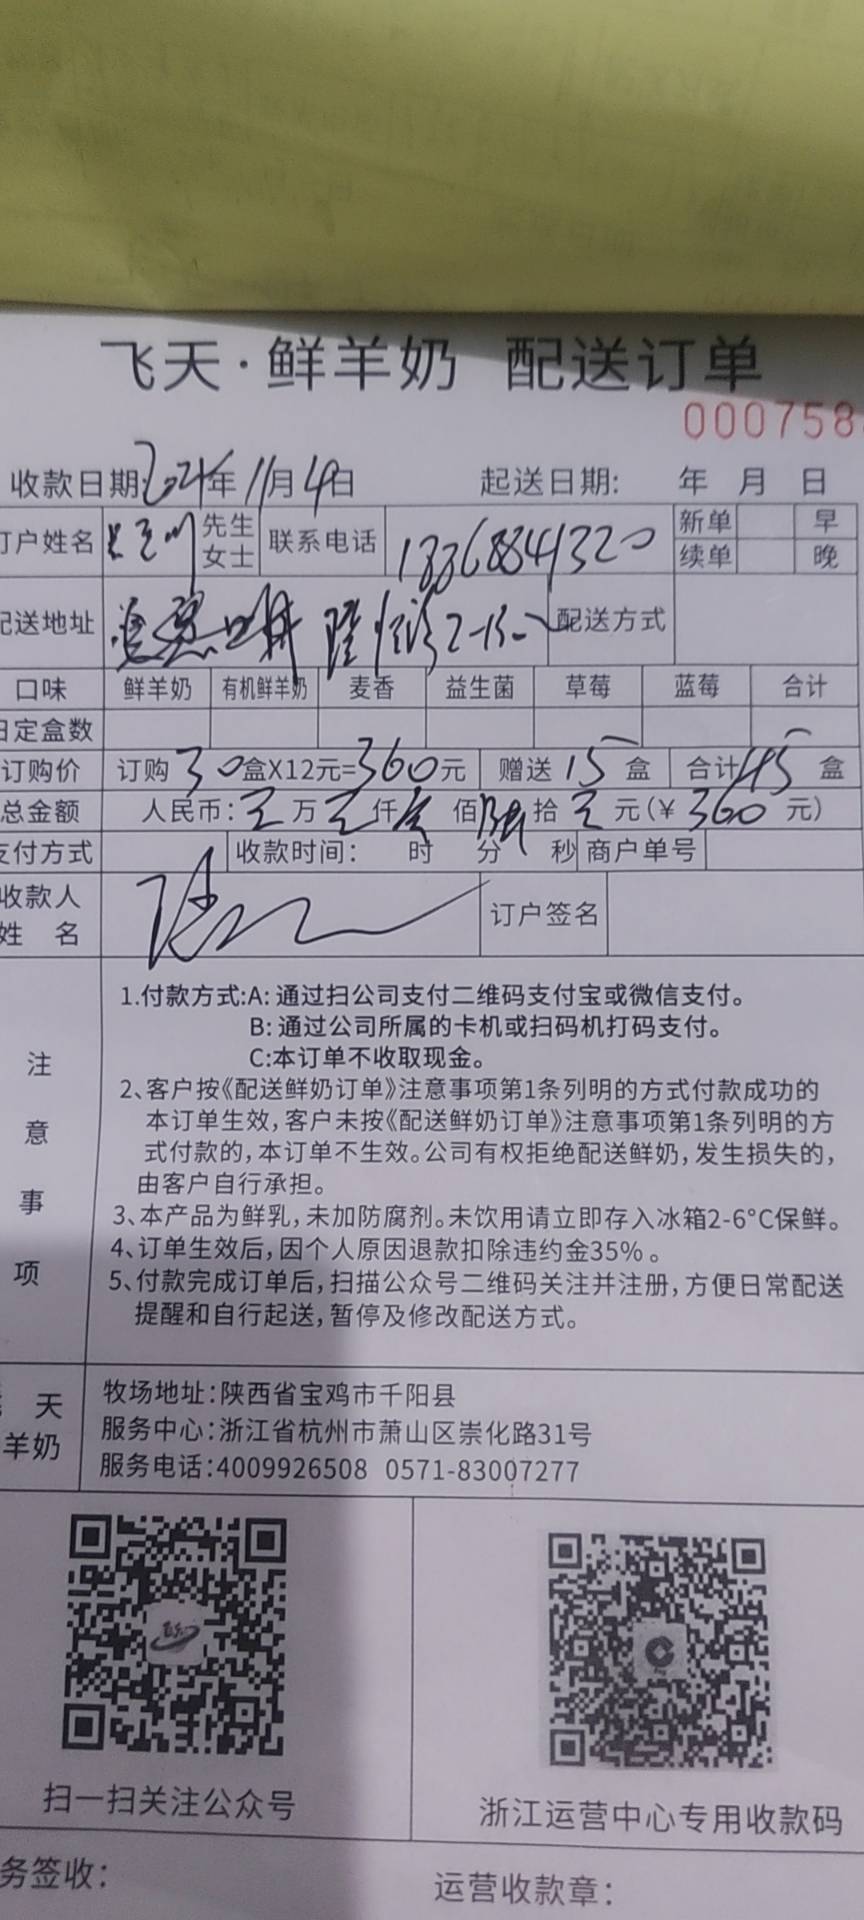 飞天·鲜羊奶 配送订单
000758
收款日期:2021年11月4日 起送日期: 年 月 日
订户姓名 先生 女士 联系电话 13368841320 新单 早
续单 晚
配送地址 2-13- 配送方式
口味 鲜羊奶 有机鲜羊奶 麦香 益生菌 草莓 蓝莓 合计
日定盒数
订购价 订购30盒X12元=360元 赠送15盒 合计45盒
总金额 人民币: 万 仟 佰陆拾 元(¥360元)
支付方式 收款时间: 时 分 秒 商户单号
收款人
姓 名 订户签名
注意事项
1.付款方式:A:通过扫公司支付二维码支付宝或微信支付。
B:通过公司所属的卡机或扫码机打码支付。
C:本订单不收取现金。
2、客户按《配送鲜奶订单》注意事项第1条列明的方式付款成功的
本订单生效,客户未按《配送鲜奶订单》注意事项第1条列明的方
式付款的,本订单不生效。公司有权拒绝配送鲜奶,发生损失的,
由客户自行承担。
3、本产品为鲜乳,未加防腐剂。未饮用请立即存入冰箱2-6°C保鲜。
4、订单生效后,因个人原因退款扣除违约金35%。
5、付款完成订单后,扫描公众号二维码关注并注册,方便日常配送
提醒和自行起送,暂停及修改配送方式。
天
羊奶
牧场地址:陕西省宝鸡市千阳县
服务中心:浙江省杭州市萧山区崇化路31号
服务电话:4009926508 0571-83007277
扫一扫关注公众号
浙江运营中心专用收款码
务签收:
运营收款章: